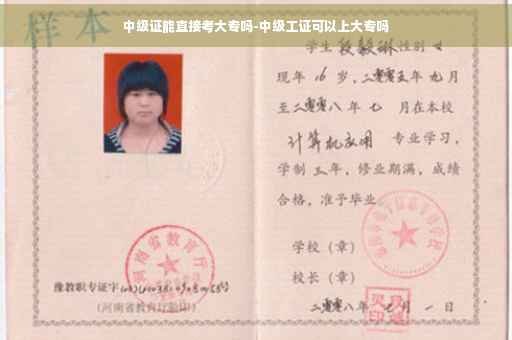 中级证能直接考大专吗-中级工证可以上大专吗
样本
学生段毅琳性别女
现年16岁,二零零五年九月
至二零零八年七月在本校
计算机应用专业学习,
学制三年,修业期满,成绩
合格,准予毕业。
学校(章)
校长(章)
二零零八年七月一日
河南省教育厅
豫教职专证字
(河南省教育厅验印)